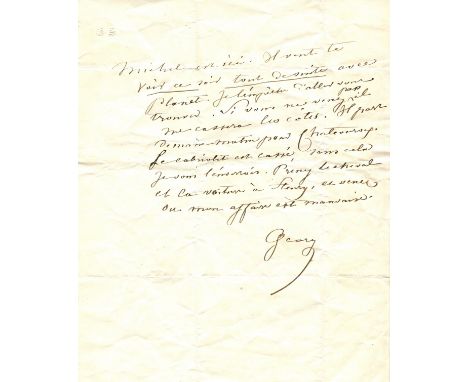 Michel est ici. Il veut te
voir ce soir tout de suite avec
Planet. Je t'engage d'aller vous
trouver. Si vous ne venez pas
me cassera les côtes. Il part
demain matin pour Chateauroux
Le cabriolet est cassé, sans cela
je vous l'enverrais. Prenez le cheval
et la voiture à Fleury, et venez
ou mon affaire est mauvaise.
George